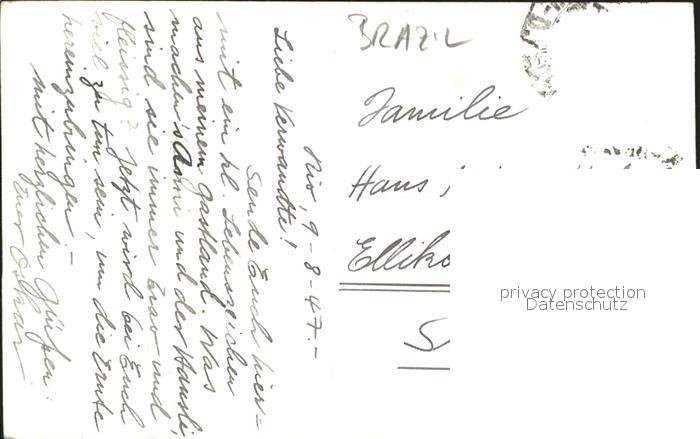 Rio, 9-8-47.-
Liebe Verwandte!
Sende Euch hier-
mit ein kl. Lebenszeichen
aus meinem Gastland. Was
machen's Anni und der Hansli,
sind sie immer brav und
fleissig? Jetzt wird bei Euch
viel zu tun sein, um die Ernte
hereinzubringen -
mit herzlichen Grüssen:
Euer Oskar
BRAZIL
Familie
Hans
Elliko
S
privacy protection
Datenschutz